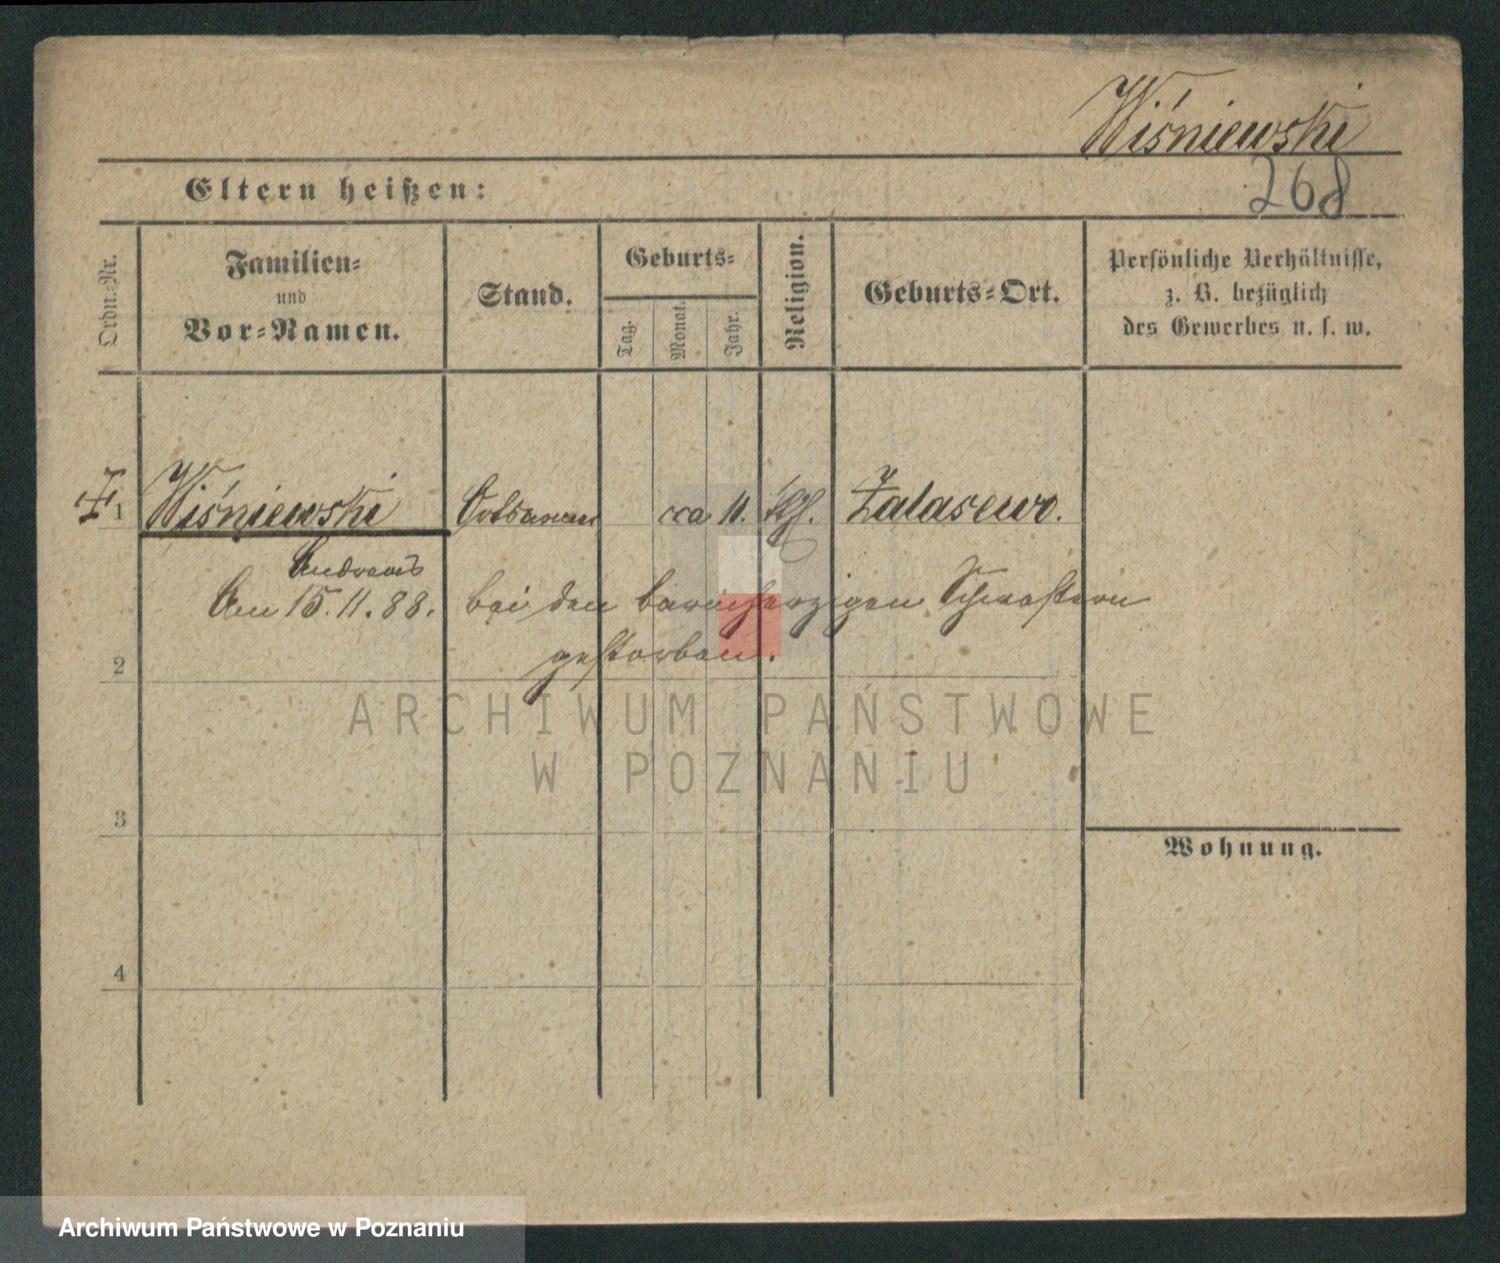 Wiśniewski
268
Eltern heißen:
Ordn.-Nr.
Familien-
und
Vor-Namen.
Stand.
Geburts-
Tag.
Monat.
Jahr.
Religion.
Geburts-Ort.
Persönliche Verhältnisse,
z. B. bezüglich
des Gewerbes u. s. w.
1 Wiśniewski Ortsarm cca 11. kth. Zalasewo.
Andreas
Am 15.11.88. bei den barmherzigen Schwestern
gestorben.
2
ARCHIWUM PAŃSTWOWE
W POZNANIU
3
Wohnung.
4
Archiwum Państwowe w Poznaniu